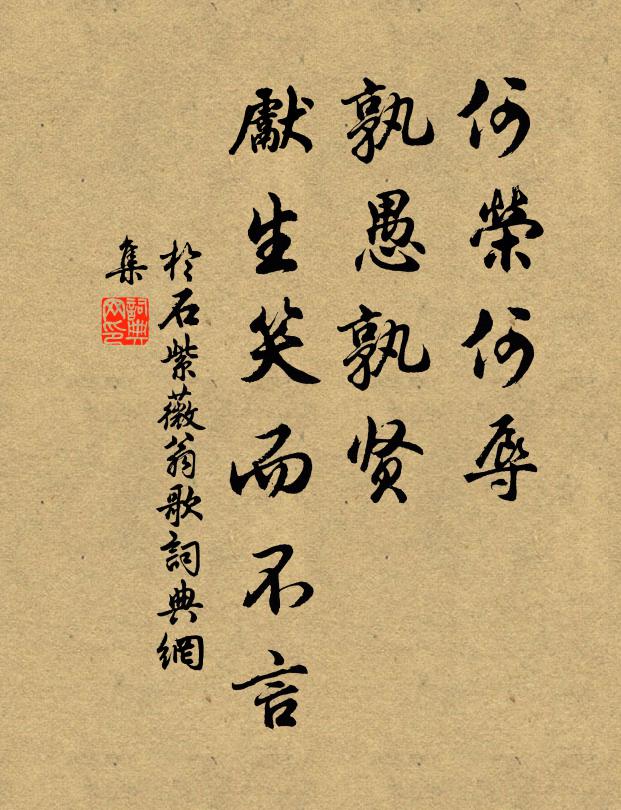 何榮何辱
孰愚孰贤
獻生笑而不言
於石紫薇翁歌詞典網
集
詞典
网印